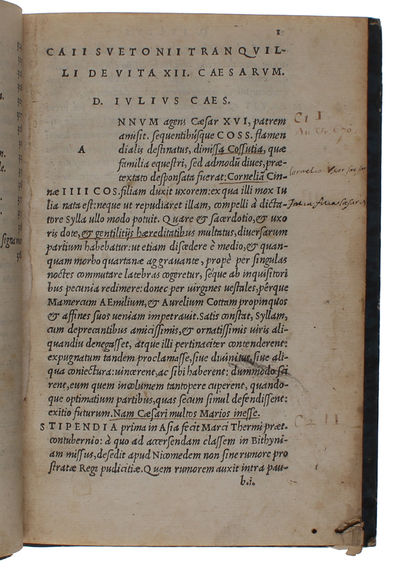 1
CAII SVETONII TRANQVIL-
LI DE VITA XII. CAESARVM.
D. IVLIVS CAES.
A NNVM agens Cæsar XVI, patrem
amisit. sequentibúsque COSS. flamen
dialis destinatus, dimissa Cossutia, quæ
familia equestri, sed admodũ diues, præ-
textato desponsata fuerat: Corneliã Cin-
næ IIII COS. filiam duxit uxorem: ex qua illi mox Iu
lia nata est: neque ut repudiaret illam, compelli à dicta-
tore Sylla ullo modo potuit. Quare & sacerdotio, & uxo
ris dote, & gentilitijs hæreditatibus multatus, diuersarum
partium habebatur: ut etiam discedere è medio, & quan-
quam morbo quartanæ aggrauante, propè per singulas
noctes commutare latebras cogeretur, séque ab inquisitori
bus pecunia redimere: donec per uirgines uestales, pérque
Mamercum AEmilium, & Aurelium Cottam propinquos
& affines suos ueniam impetrauit. Satis constat, Syllam,
cum deprecantibus amicissimis, & ornatissimis uiris ali-
quandiu denegasset, atque illi pertinaciter contenderent:
expugnatum tandem proclamasse, siue diuinitus, siue ali-
qua coniectura: uincerent, ac sibi haberent: dummodo sci
rent, eum quem incolumem tantopere cuperent, quando-
que optimatium partibus, quas secum simul defendissent:
exitio futurum. Nam Cæsari multos Marios inesse.
STIPENDIA prima in Asia fecit Marci Thermi præt.
contubernio: à quo ad accersendam classem in Bithyni-
am missus, desedit apud Nicomedem non sine rumore pro
stratæ Regi pudicitiæ. Quem rumorem auxit intra pau-
b.i.